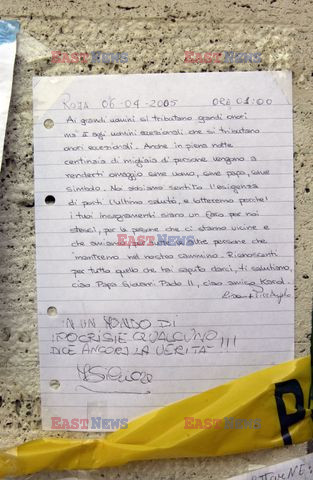 ROMA 06-04-2005 ORE 01:00
Ai grandi uomini si tributano grandi onori
ma è agli uomini eccezionali che si tributano
onori eccezionali. Anche in piena notte
centinaia di migliaia di persone vengono a
renderti omaggio come uomo, come papa, come
simbolo. Noi abbiamo sentito l'esigenza
di porti l'ultimo saluto, e lotteremo perché
i tuoi insegnamenti siano un faro per noi
stessi, per le persone che ci stanno vicine e
che amiamo per tutte le altre persone che
incontreremo nel nostro cammino. Riconoscenti
per tutto quello che hai saputo darci, ti salutiamo,
ciao Papa Giovanni Paolo II, ciao amico Karol.
IN UN MONDO DI
IPOCRISIE QUALCUNO
DICE ANCORA LA VERITA' !!!
EASTNEWS EASTNEWS
EASTNEWS EASTNEWS
EASTNEWS EASTNEWS